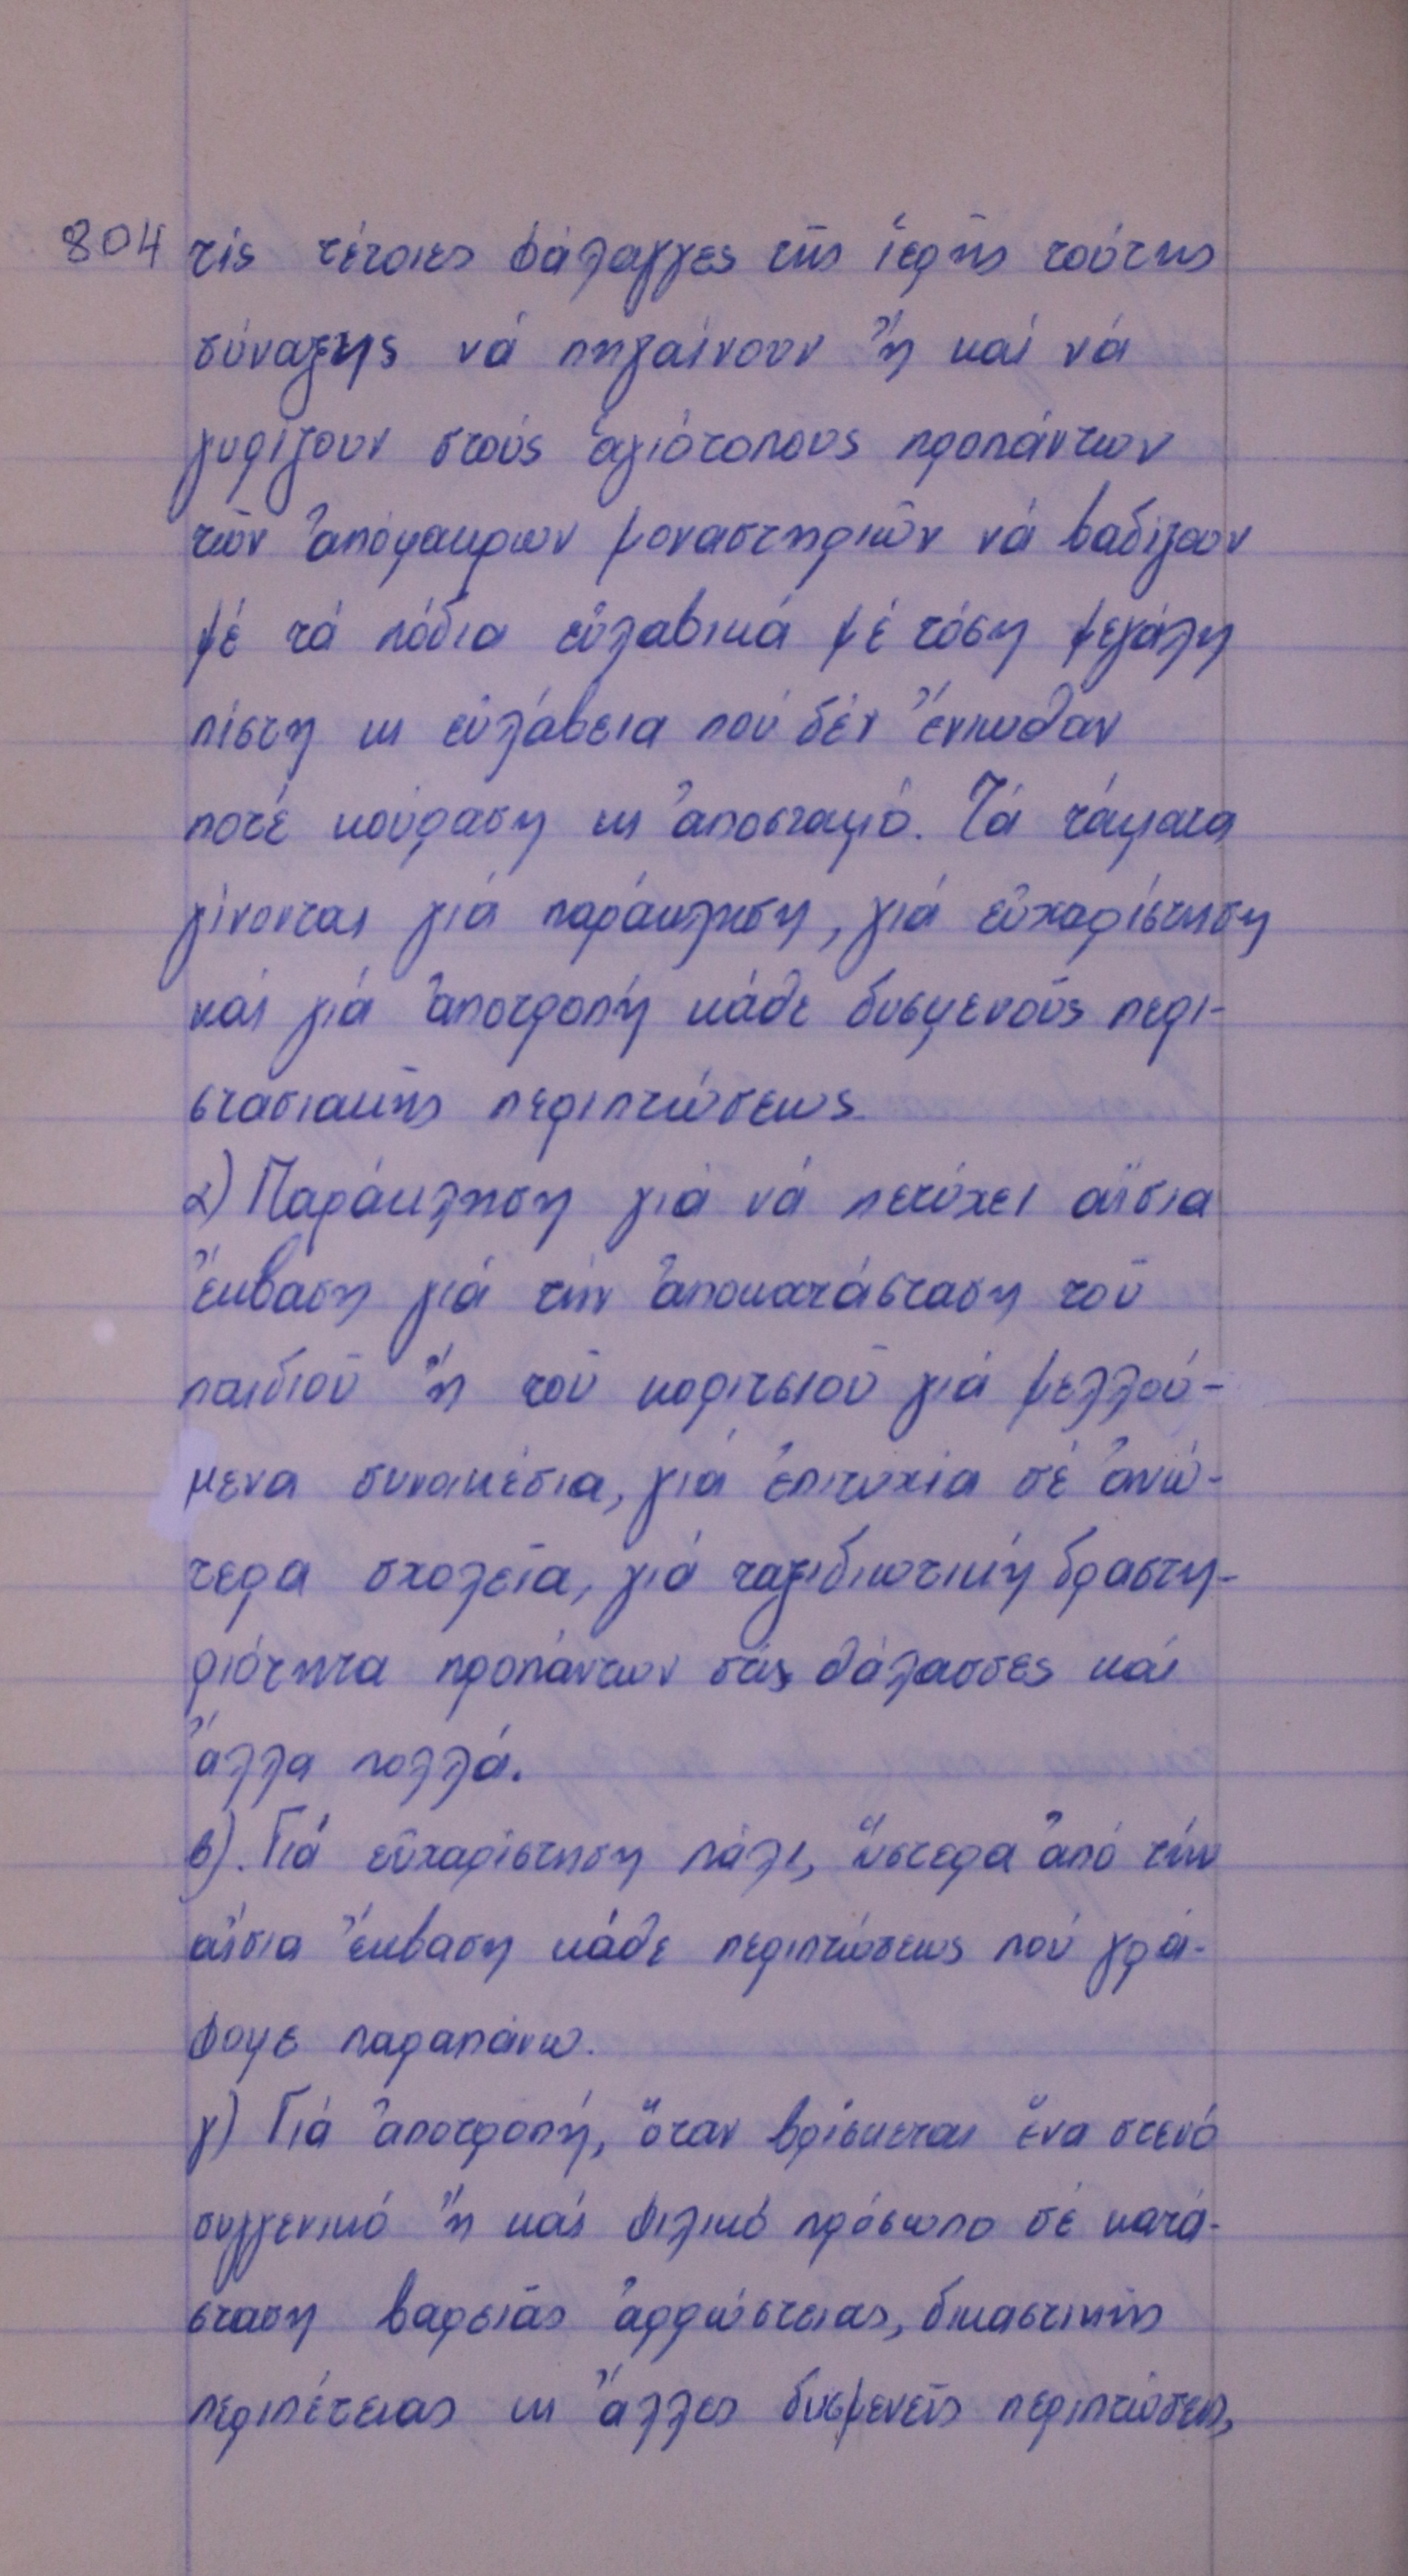 804 τίς τέτοιες φάλαγγες τῆς ἱερῆς τούτης
σύναξης νά πηγαίνουν ἤ καί νά
γυρίζουν στούς ἁγιότοπους προπάντων
τῶν ἀπόμακρων μοναστηριῶν νά βαδίζουν
μέ τά πόδια εὐλαβικά μέ τόση μεγάλη
πίστη κι εὐλάβεια πού δέν ἔνιωθαν
ποτέ κούραση κι ἀποσταμό. Τά τάματα
γίνονται γιά παράκληση, γιά εὐχαρίστηση
καί γιά ἀποτροπή κάθε δυσμενοῦς περι-
στασιακῆς περιπτώσεως
α) Παράκληση γιά νά πετύχει αἴσια
ἔκβαση γιά τήν ἀποκατάσταση τοῦ
παιδιοῦ ἤ τοῦ κοριτσιοῦ γιά μελλού-
μενα συνοικέσια, γιά ἐπιτυχία σέ ἀνώ-
τερα σχολεῖα, γιά ταξιδιωτική δραστη-
ριότητα προπάντων στίς θάλασσες καί
ἄλλα πολλά.
β). Γιά εὐχαρίστηση πάλι, ὕστερα ἀπό τήν
αἴσια ἔκβαση κάθε περιπτώσεως πού γρά-
φομε παραπάνω.
γ) Γιά ἀποτροπή, ὅταν βρίσκεται ἕνα στενό
συγγενικό ἤ καί φιλικό πρόσωπο σέ κατά-
σταση βαρειᾶς ἀρρώστειας, δικαστικῆς
περιπέτειας κι ἄλλες δυσμενεῖς περιπτώσεις,